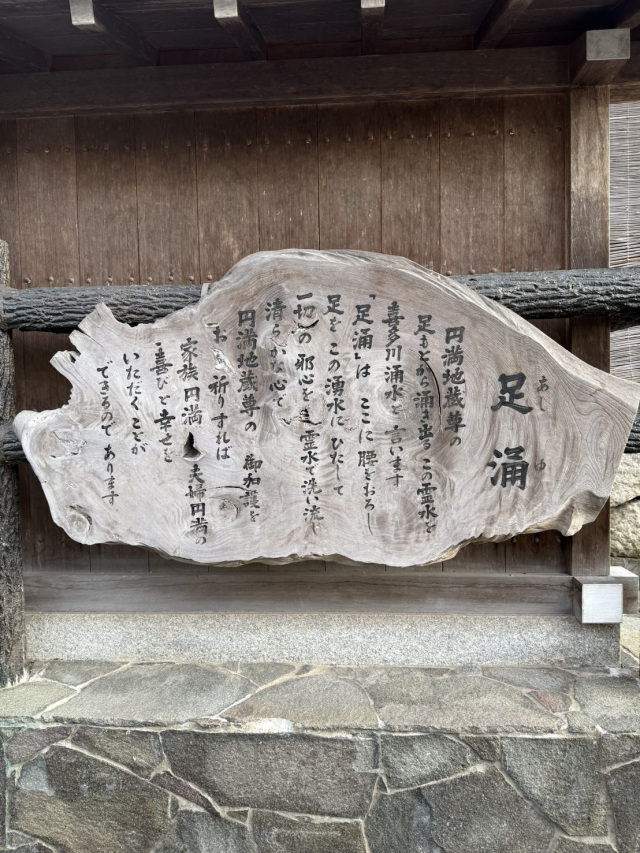 足涌
あし ゆ
円満地蔵尊の
足もとから涌き出るこの霊水を
喜多川涌水と言います
「足涌」は ここに腰をおろし
足をこの湧水にひたして
一切の邪心を 霊水で洗い流し
清らかな心で
円満地蔵尊の 御加護を
お祈りすれば
家族円満 夫婦円満の
喜びと幸せを
いただくことが
できるのであります